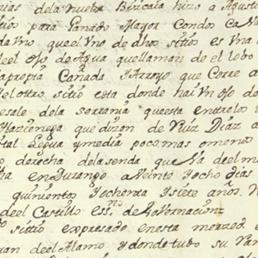 rias de la Nueva Bizcaia hizo a Agustin
sitios para Ganado Mayor Con dos Ca
da Uno, que el Vno de dhos sitios es Vna
el ojo de Agua que llaman de el lobo
la propia Cañada y Arroyo que Corre a
el otro sitio esta donde hai Vn ojo de
sale de la serrania questa entre los
Hazienega que dizen de Ruiz Diaz a
tal Legua y media poco mas o menos
o derecha de la senda que Va de el m
ha en Durango a Veinte y ocho dias
quinientos y ochenta y siete años.
de el Castillo essno de Governacion
sittio expresado en esta merced
uan de el Alamo y donde tubo su